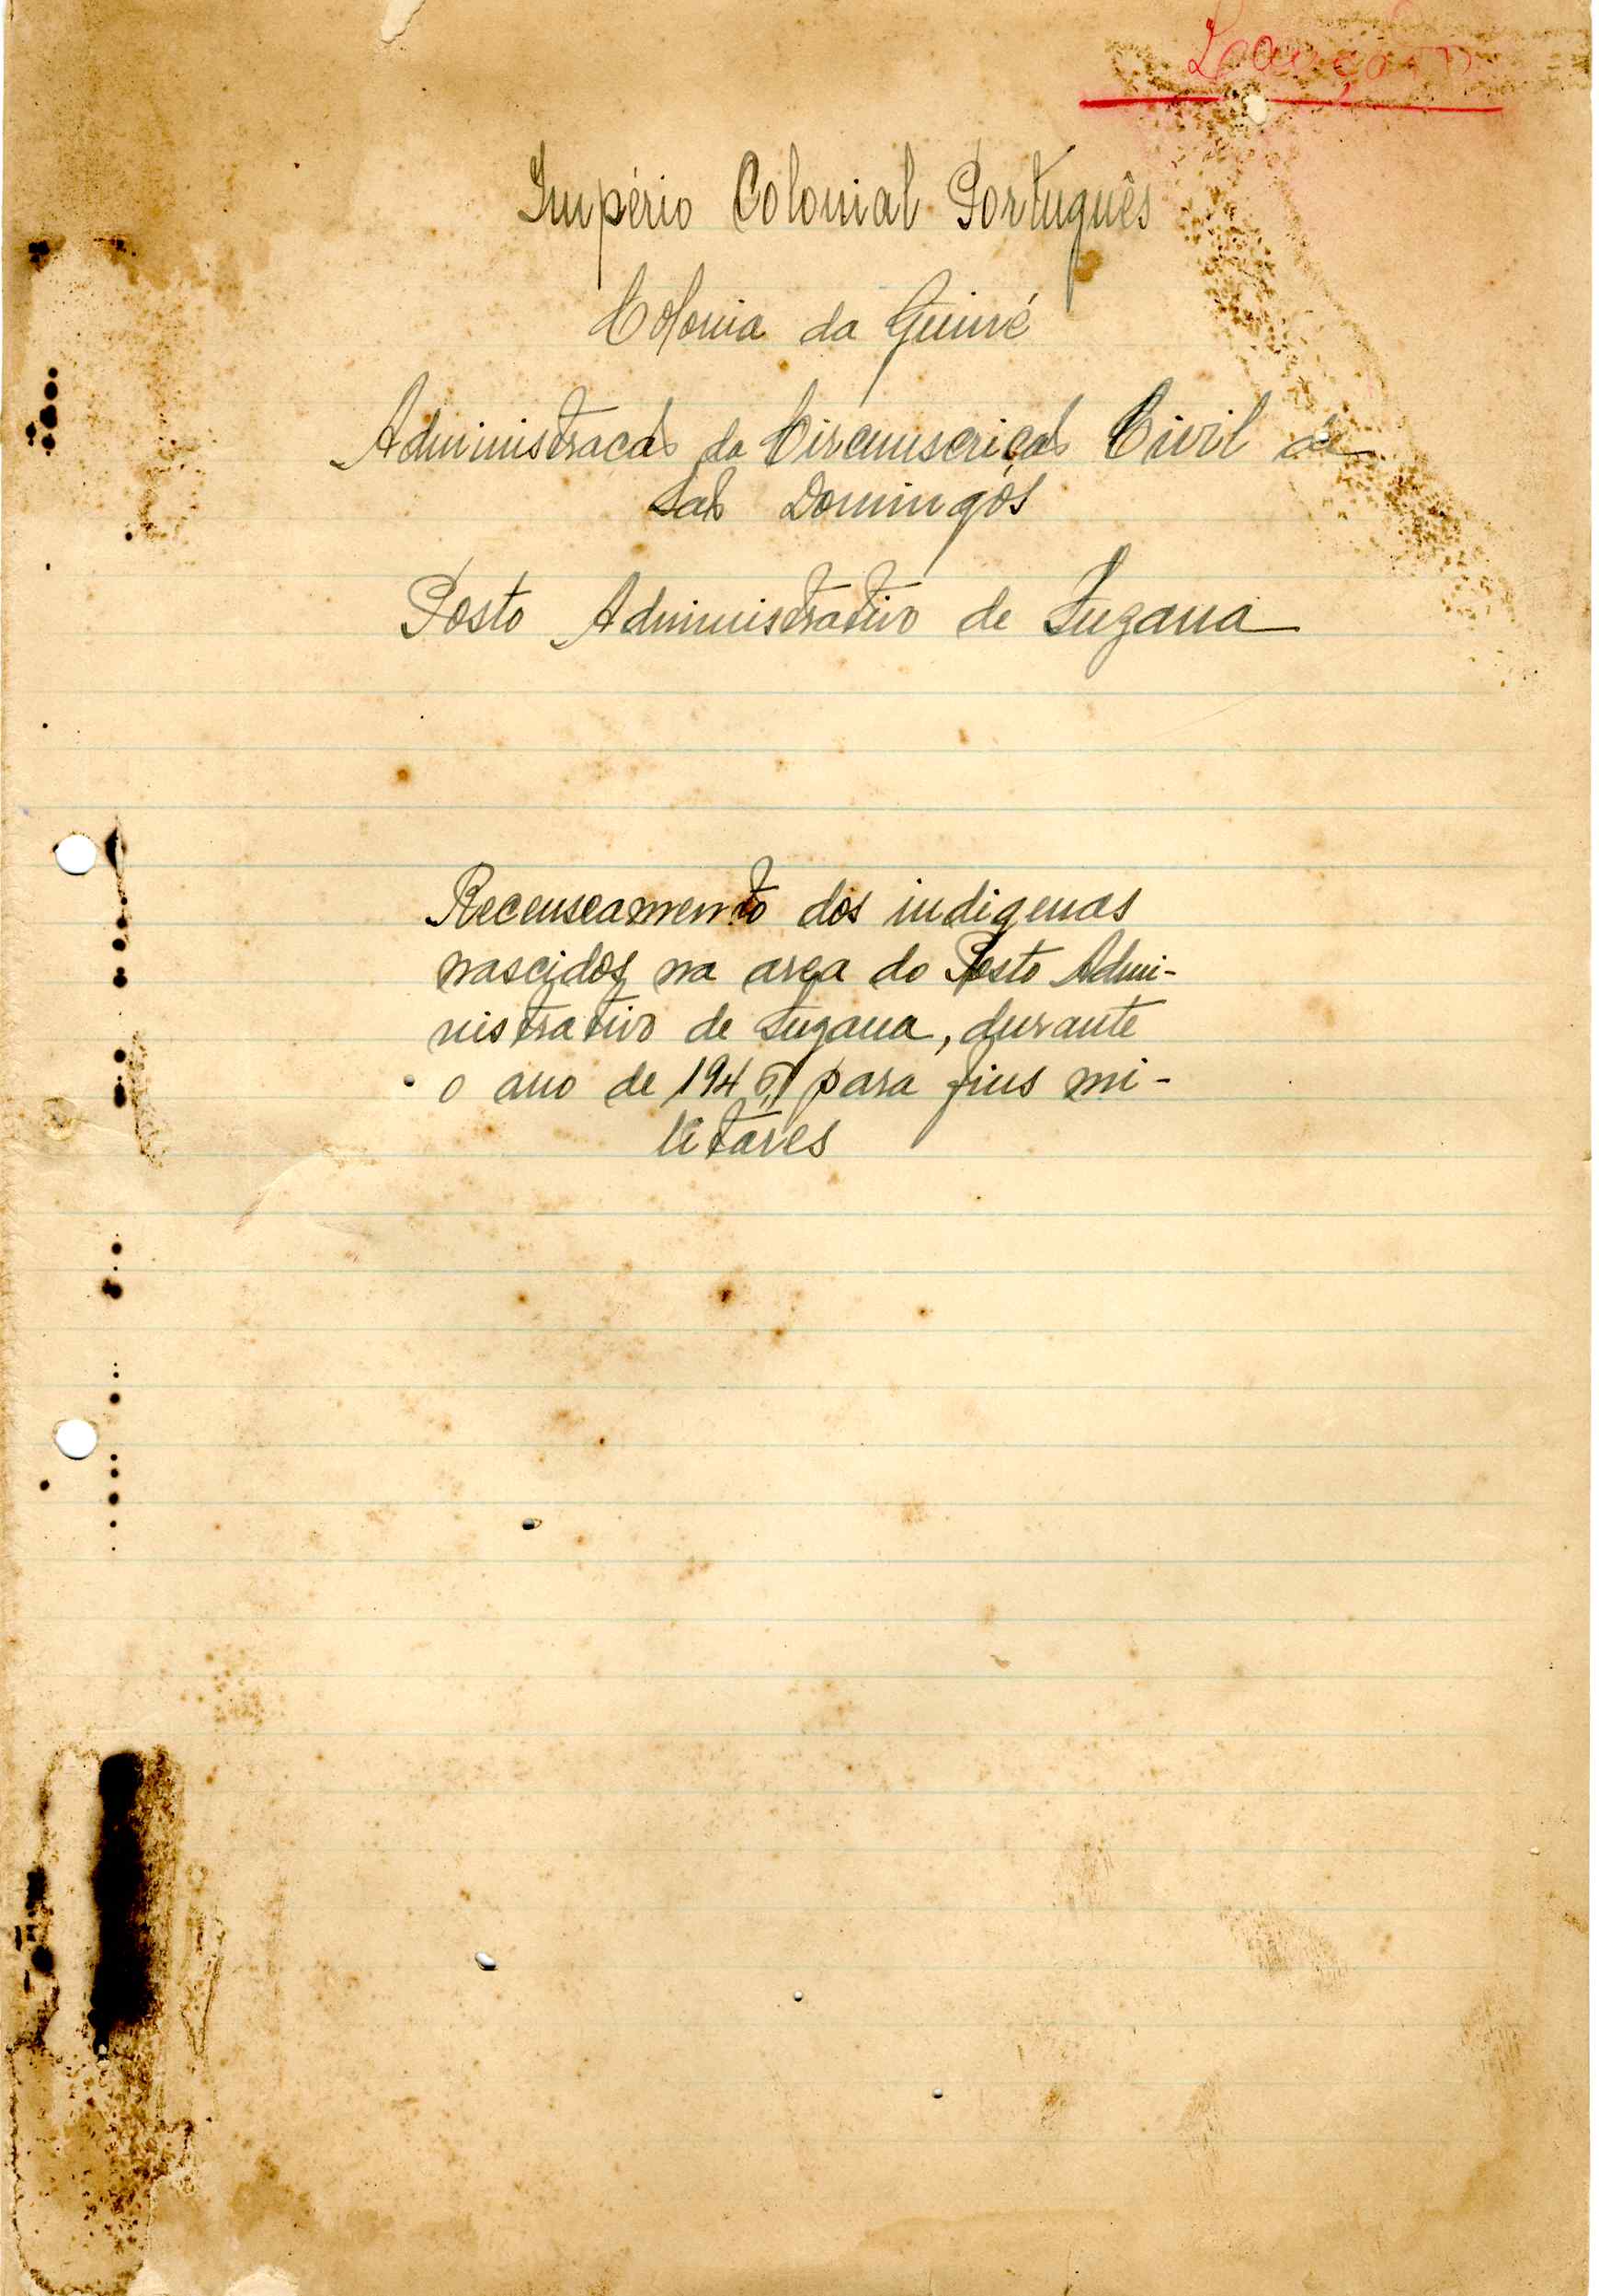 Império Colonial Português
Colonia da Guiné
Administracão da Circunscrição Civil de
São Domingos
Posto Administrativo de Suzana
Recenseamento dos indigenas
nascidos na area do Posto Admi-
nistrativo de Suzana, durante
o ano de para fins mi-
litares